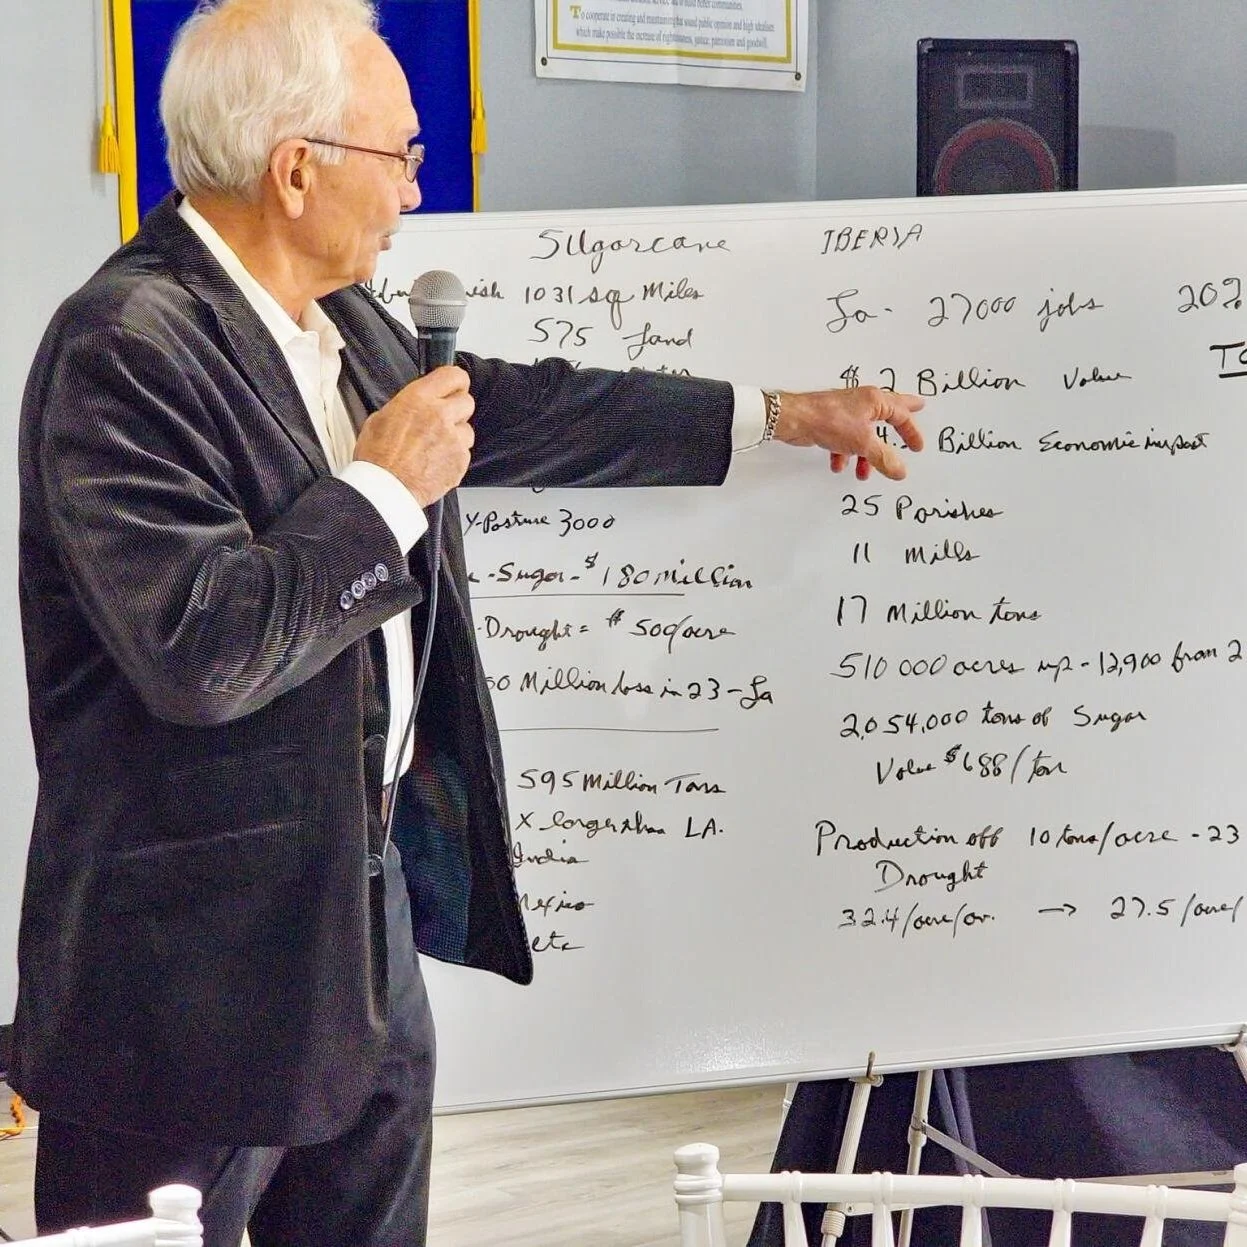 To cooperate in creating and maintaining that sound public opinion and high idealism
which make possible the increase of righteousness, justice, patriotism and goodwill.
Sugarcane
1031 sq Miles
575 Land
Y-Pasture 3000
-Sugar-$180 Million
-Drought = $500/acre
Million loss in 23 - La
595 Million Tons
X larger than LA.
India
Mexico
etc
IBERIA
La - 27000 jobs 20%
$2 Billion Value
Billion Economic impact
25 Parishes
11 Mills
17 Million tons
510 000 acres up - 12,900 from 2
2,054,000 tons of Sugar
Value $688/ton
Production off 10 tons/acre - 23
Drought
32.4/acre/av. → 27.5/acre/